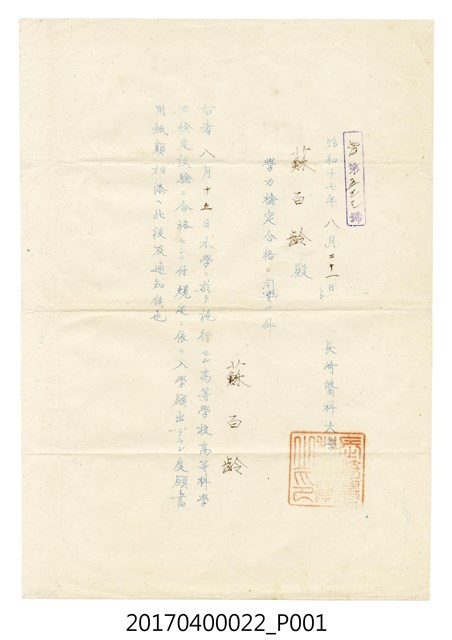 學第五三三號
昭和十七年八月二十一日
長崎醫科大學
蘇百齡殿
學力檢定合格ニ關スル件
蘇百齡
右者八月十五日本學ニ於テ施行セル高等學校高等科學
力檢定試驗ニ合格セシニ付規定ニ依リ入學願出デラレ度願書
用紙類相添ヘ此段及通知候也
20170400022_P001